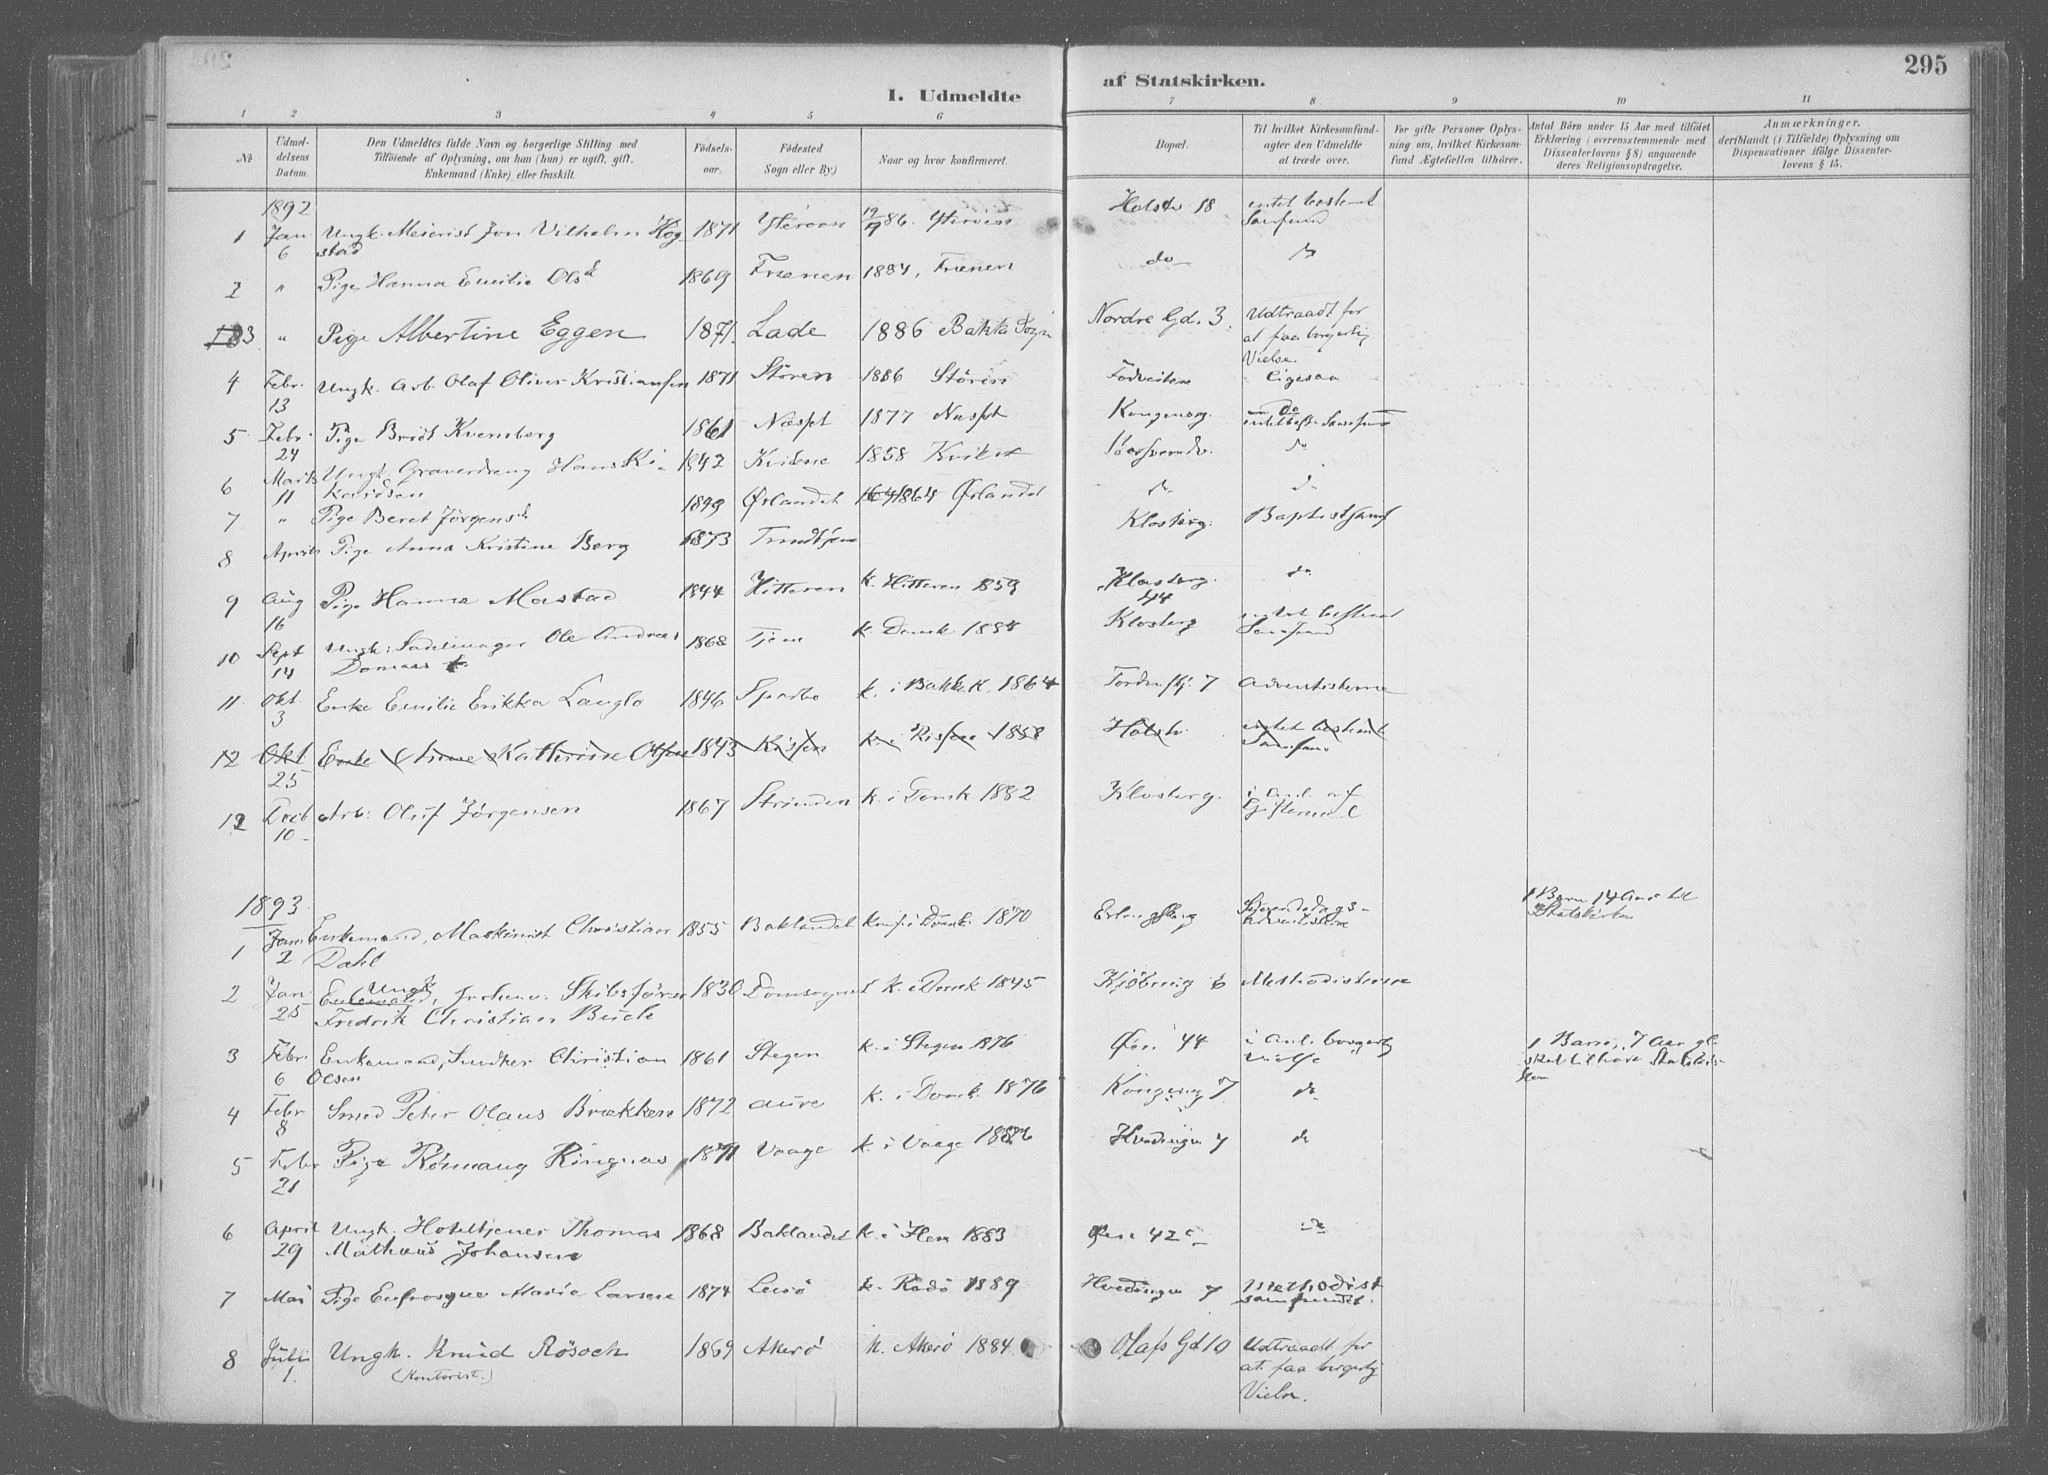 295
I. Udmeldte af Statskirken.
1 2 3 4 5 6 7 8 9 10 11
No
Udmeldelsens Datum.
Den Udmeldtes fulde Navn og borgerlige Stilling med
Tilföiende af Oplysning, om han (hun) er ugift, gift.
Enkemand (Enke) eller fraskilt.
Födselsaar.
Födested
Sogn eller By)
Naar og hvor konfirmeret.
Bopel.
Til hvilket Kirkesamfund
agter den Udmeldte
at træde over.
For gifte Personer Oplysning om, hvilket Kirkesamfund Ægtefællen tilhörer.
Antal Börn under 15 Aar med tilföiet
Erklæring (overensstemmende med
Dissenterlovens § 8) angaaende
deres Religionsopdragelse.
Anmærkninger.
deriblandt (i Tilfælde) Oplysning om
Dispensationer ifölge Dissenterlovens § 15.
1892
1 Jan 6 Ungk. Meierist Jon Vilhelm Kogstad 1871 Ytterøen 19/9 86. Holstv. 18 intet bestemt Samfund
2 " Pige Hanna Emilie Olsd 1869 Frænen 1884, Frænen do do
3 " Pige Albertine Eggen 1871. Lade 1886 Bakke Sogn Nordre Gd. 3. Udtraadt for at faa borgerlig Vielse.
4 Febr. 13 Ungk. Arb. Olaf Oliver Kristiansen 1871 Støren 1886 Støren ligesaa
5 Febr. 24 Pige Kvernberg 1861 Næsset 1877 Næsset do
6 Marts 11 Ungk. Graverdreng Hans 1842 Kvikne 1858 do
7 " Pige Beret Jørgensd Ørlandet 1864 Ørlandet do do
8 April Pige Anna Kristine Berg 1873 Trondhjem Klosterg. Baptistsamf
9 Aug 16 Pige Hanna Mastad 1844 Hitteren k. Hitteren 1859 Klosterg. 44 do
10 Sept 14 Ungk. Sadelmager Ole Andreas 1868 k. Domk. Klosterg intet bestemt Samfund
11 Okt 3 Enke Emilie Erikka Langlo 1846 Sparbo k. i Bakke K. 1864 Tordenskj. 7 Adventisterne
12 Okt 25 Enke Anne Katherine Olsen 1843 Rissen k. i Rissen 1858 Holstv. intet bestemt Samfund
12 Decb 10 Arb. Oluf Jørgensen 1867 Strinden k. i Domk 1882 Klosterg. i Anl. af Giftermaal
1893
1 Jan 2 Enkemand, Maskinist Christian Dahl 1855 Baklandet Konf. i Domk. 1870 Syvendedags-Adventisterne 1 Barn 14 Aar Statskirken
2 Jan. 25 Ungk Skibsfører Fredrik Christian Buck 1830 Domsognet k. i Domk 1845 Kjöbmg 6 Methodisterne
3 Febr. 6 Enkemand, Snedker Christian Olsen 1861 Stegen k. i Stegen 1876 Øvr. 44 i Anl. borgerlig Vielse 1 Barn, 7 Aar skal tilhøre
4 Febr 8 Smed Peter Olaus Brækken 1872 Aure k. i Domk. Kongensg 7 do
5 Febr 21 Pige Ringnæs 1871 Vaage k. i Vaage do
6 April 29 Ungk. Hoteltjener Thomas Mathæus Johansen 1868 Baklandet k. i 1883 do
7 Mai Pige Eufrosyne Marie Larsen 1874 k. Rødø 1889 7 Methodistsamfundet.
8 Juli 1. Ungk. Knud Rösoch (Kontorist.) 1869 Akerö k. Akerö 1884 Olafs Gd 10 Udtraadt for at faa borgerlig Vielse.